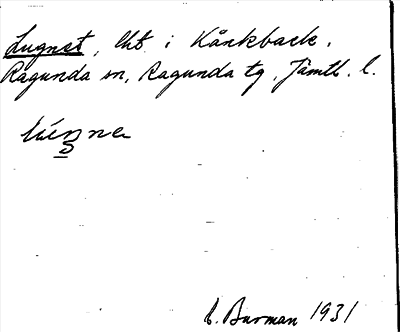 Lugnet, lht i Kånkback.
Ragunda sn, Ragunda tg, Jämtl. l.
E. Burman 1931